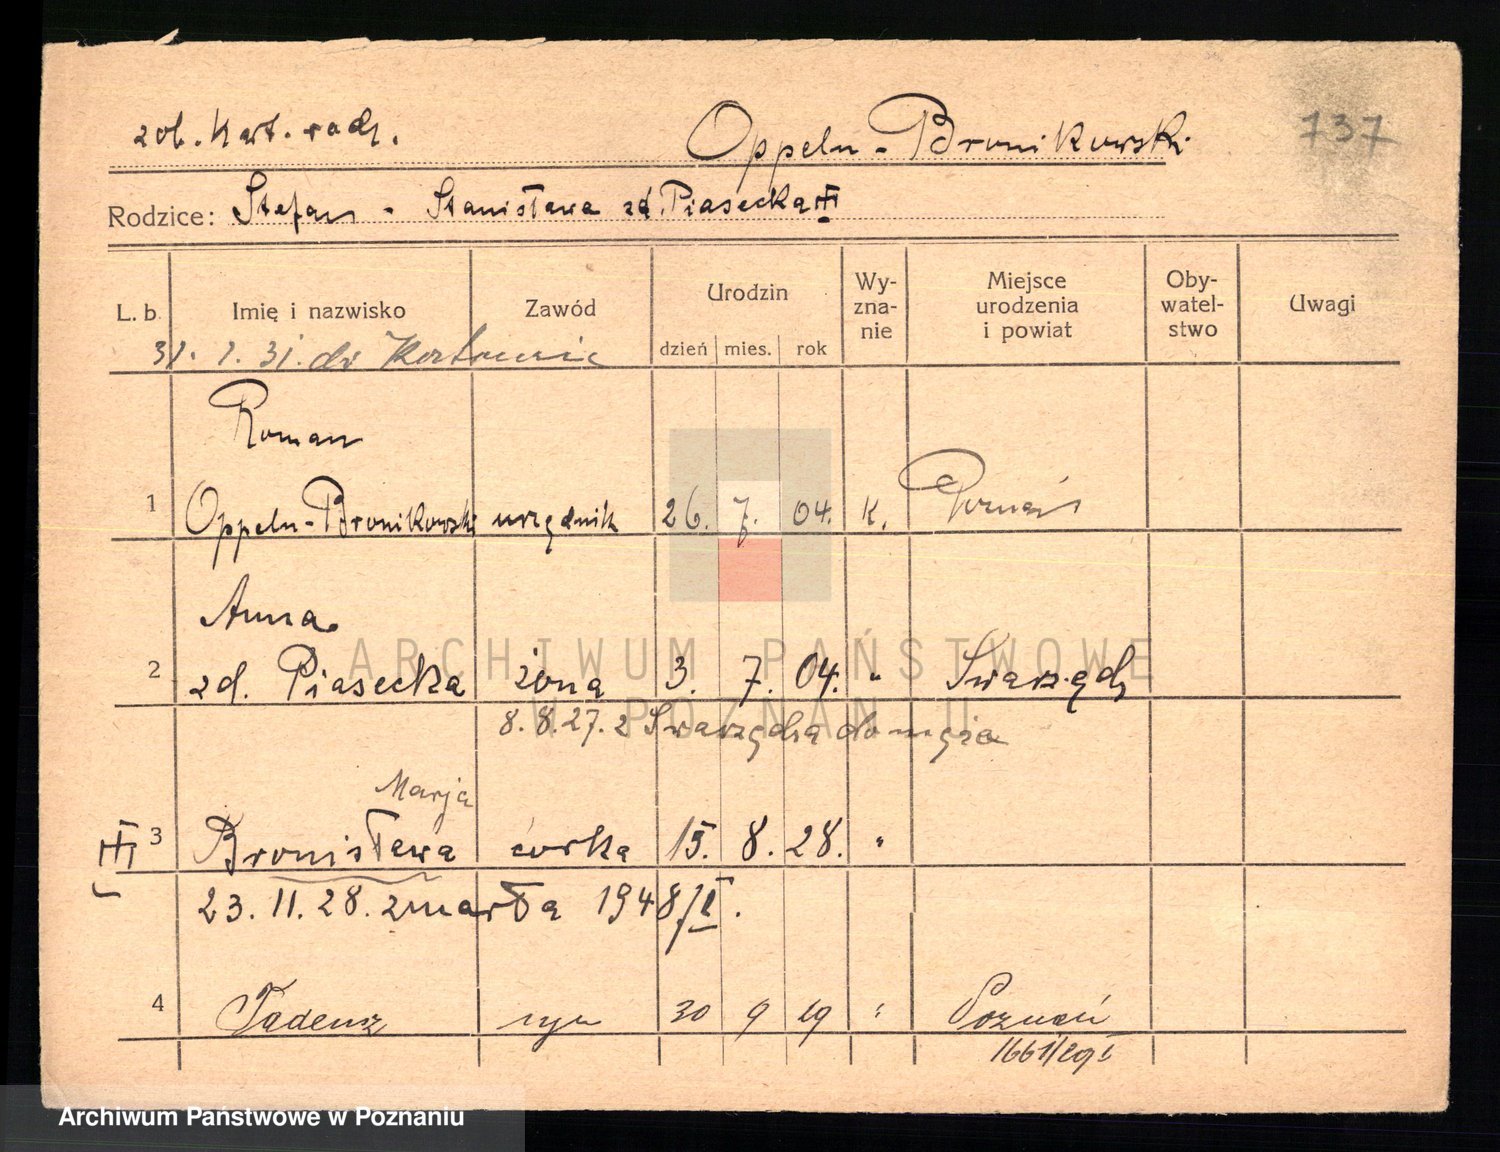 zob. Kart. rodz. Oppeln-Bronikowski 737
Rodzice: Stefan - Stanisława zd. Piasecka
L. b. Imię i nazwisko Zawód Urodzin dzień mies. rok Wy-zna-nie Miejsce urodzenia i powiat Oby-watel-stwo Uwagi
31. 1. 31. do Katowic
Roman
1 Oppeln-Bronikowski urzędnik 26. 7. 04. K. Poznań
Anna
2 zd. Piasecka żona 3. 7. 04. " Swarzędz
8. 8. 27. z Swarzędza do męża
Marja
3 Bronisława córka 15. 8. 28. "
23. 11. 28. zmarła 1948/I.
4 Tadeusz syn 30 9 29 " Poznań
1661/29
ARCHIWUM PAŃSTWOWE
W POZNANIU
Archiwum Państwowe w Poznaniu